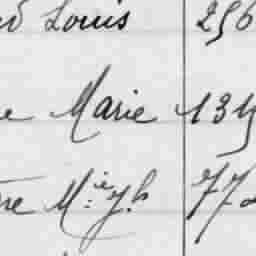 Louis 256
e Marie 13
re M.ie J.h 77